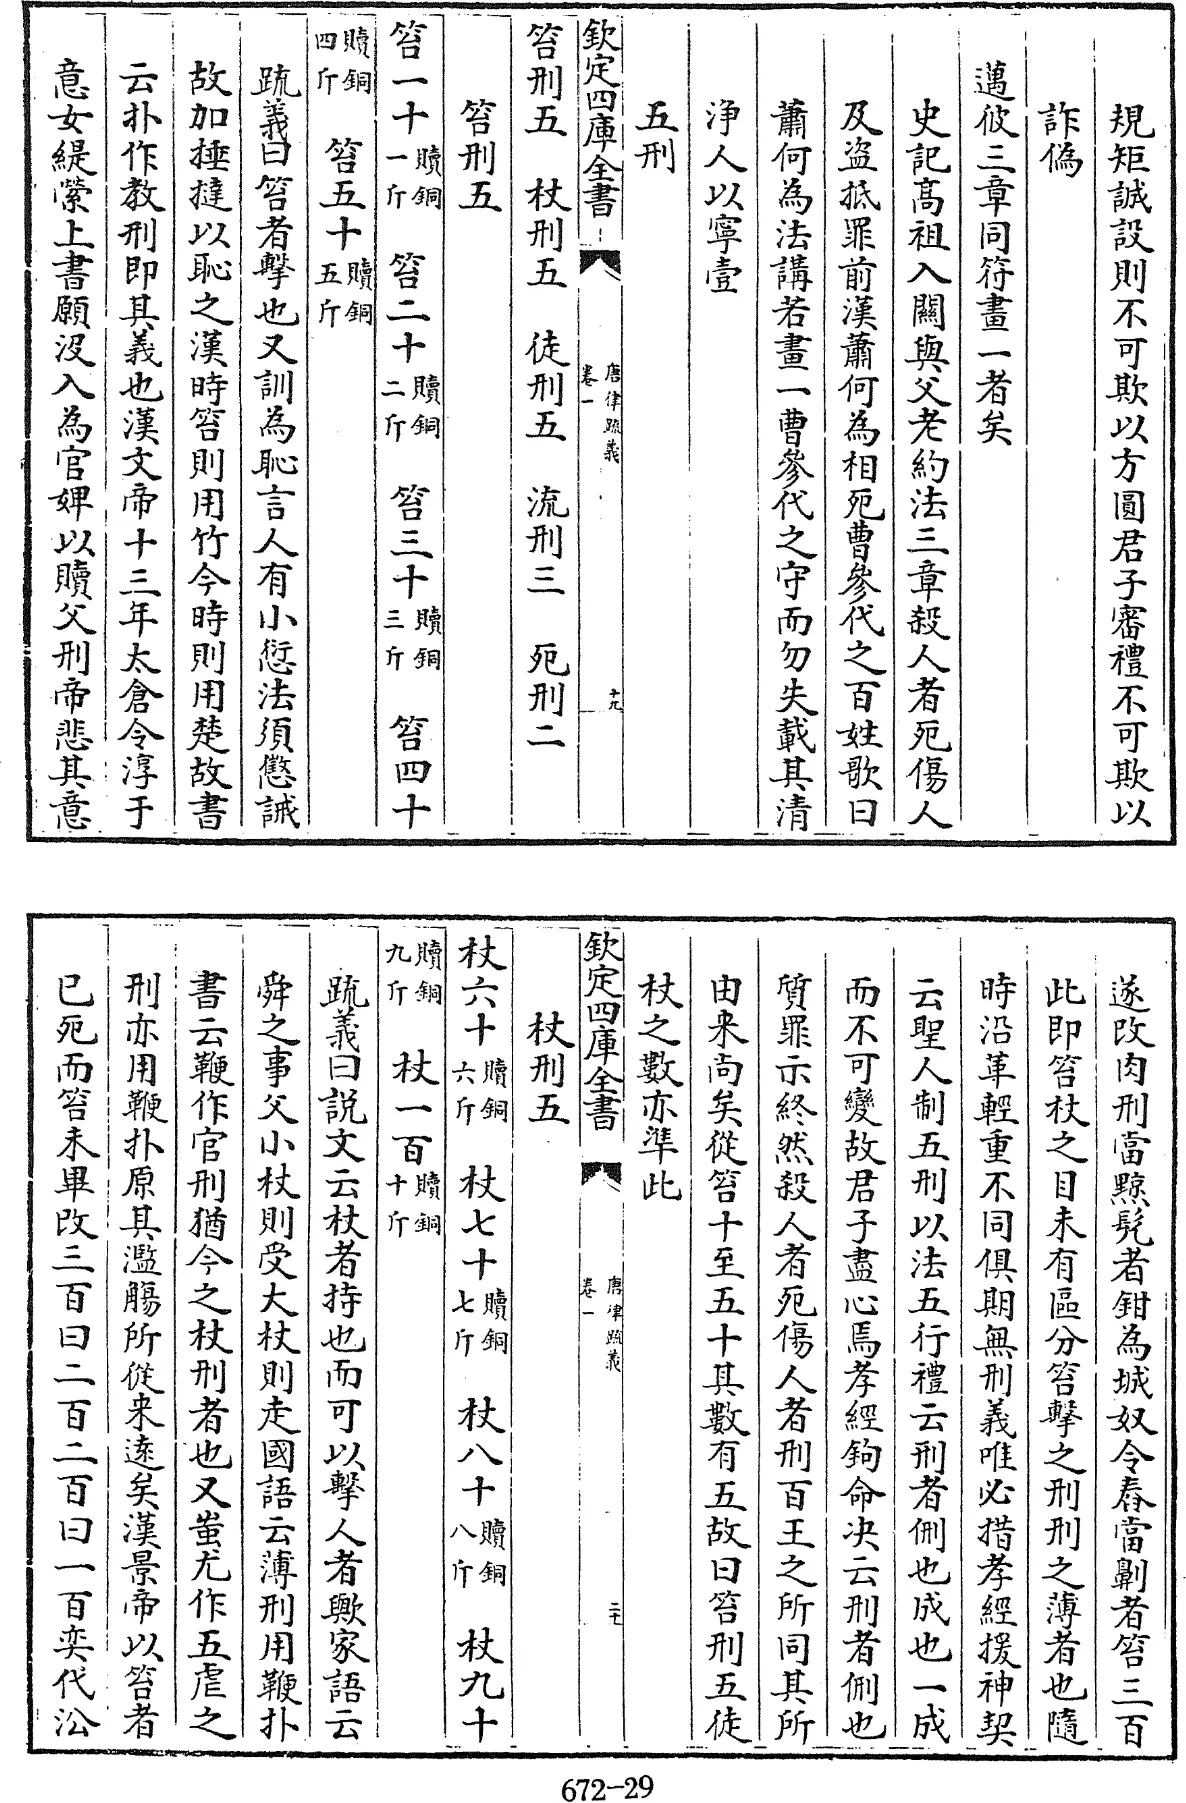 規矩誠設則不可欺以方圓君子審禮不可欺以
詐偽
邁彼三章同符畫一者矣
史記高祖入關與父老約法三章殺人者死傷人
及盜抵罪前漢蕭何為相死曹參代之百姓歌曰
蕭何為法講若畫一曹參代之守而勿失載其清
淨人以寧壹
五刑
欽定四庫全書
唐律疏義
卷一
十九
笞刑五　杖刑五　徒刑五　流刑三　死刑二
笞刑五
笞一十贖銅一斤　笞二十贖銅二斤　笞三十贖銅三斤　笞四十
贖銅四斤　笞五十贖銅五斤
疏義曰笞者擊也又訓為恥言人有小愆法須懲誡
故加捶撻以恥之漢時笞則用竹今時則用楚故書
云扑作教刑即其義也漢文帝十三年太倉令淳于
意女緹縈上書願沒入為官婢以贖父刑帝悲其意
遂改肉刑當黥髡者鉗為城奴令舂當劓者笞三百
此即笞杖之目未有區分笞擊之刑刑之薄者也隨
時沿革輕重不同俱期無刑義唯必措孝經援神契
云聖人制五刑以法五行禮云刑者侀也成也一成
而不可變故君子盡心焉孝經鉤命决云刑者侀也
質罪示終然殺人者死傷人者刑百王之所同其所
由来尚矣從笞十至五十其數有五故曰笞刑五徒
杖之數亦準此
欽定四庫全書
唐律疏義
卷一
二十
杖刑五
杖六十贖銅六斤　杖七十贖銅七斤　杖八十贖銅八斤　杖九十
贖銅九斤　杖一百贖銅十斤
疏義曰說文云杖者持也而可以擊人者歟家語云
舜之事父小杖則受大杖則走國語云薄刑用鞭扑
書云鞭作官刑猶今之杖刑者也又蚩尤作五虐之
刑亦用鞭扑原其濫觴所從来遠矣漢景帝以笞者
已死而笞未畢改三百曰二百二百曰一百奕代沿
672-29